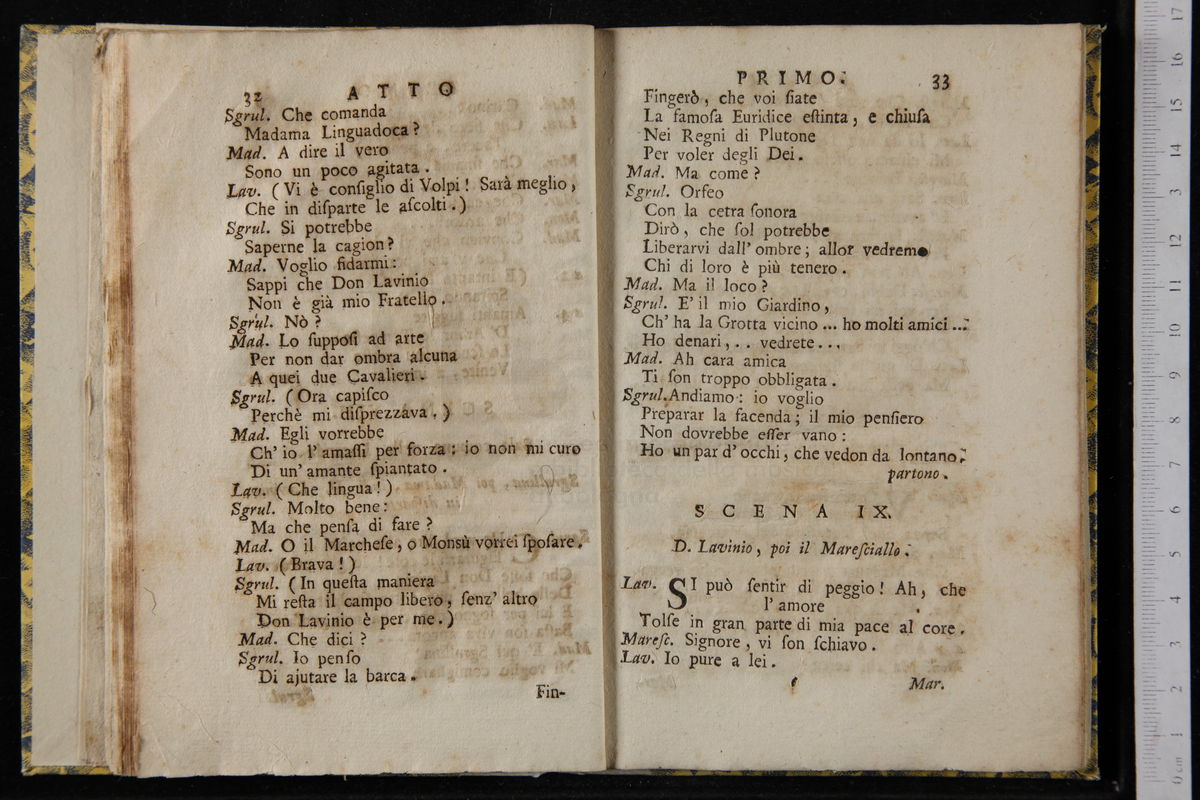 32 ATTO
Sgrul. Che comanda
Madama Linguadoca?
Mad. A dire il vero
Sono un poco agitata.
Lav. (Vi è conſiglio di Volpi! Sarà meglio,
Che in diſparte le aſcolti.)
Sgrul. Si potrebbe
Saperne la cagion?
Mad. Voglio fidarmi:
Sappi che Don Lavinio
Non è già mio Fratello.
Sgrul. Nò?
Mad. Lo ſuppoſi ad arte
Per non dar ombra alcuna
A quei due Cavalieri.
Sgrul. (Ora capiſco
Perchè mi diſprezzava.)
Mad. Egli vorrebbe
Ch' io l' amaſſi per forza: io non mi curo
Di un' amante ſpiantato.
Lav. (Che lingua!)
Sgrul. Molto bene:
Ma che penſa di fare?
Mad. O il Marcheſe, o Monsù vorrei ſpoſare.
Lav. (Brava!)
Sgrul. (In queſta maniera
Mi reſta il campo libero, ſenz' altro
Don Lavinio è per me.)
Mad. Che dici?
Sgrul. Io penſo
Di ajutare la barca.
Fin-
PRIMO. 33
Fingerò, che voi ſiate
La famoſa Euridice eſtinta, e chiuſa
Nei Regni di Plutone
Per voler degli Dei.
Mad. Ma come?
Sgrul. Orfeo
Con la cetra ſonora
Dirò, che ſol potrebbe
Liberarvi dall' ombre; allor vedremo
Chi di loro è più tenero.
Mad. Ma il loco?
Sgrul. E' il mio Giardino,
Ch' ha la Grotta vicino ... ho molti amici ...
Ho denari, .. vedrete...
Mad. Ah cara amica
Ti ſon troppo obbligata.
Sgrul. Andiamo: io voglio
Preparar la facenda; il mio penſiero
Non dovrebbe eſſer vano:
Ho un par d' occhi, che vedon da lontano.
partono.
SCENA IX.
D. Lavinio, poi il Mareſciallo.
Lav. SI può ſentir di peggio! Ah, che
l' amore
Tolſe in gran parte di mia pace al core.
Mareſc. Signore, vi ſon ſchiavo.
Lav. Io pure a lei.
Mar.
0 cm 1 2 3 4 5 6 7 8 9 10 11 12 13 14 15 16 17